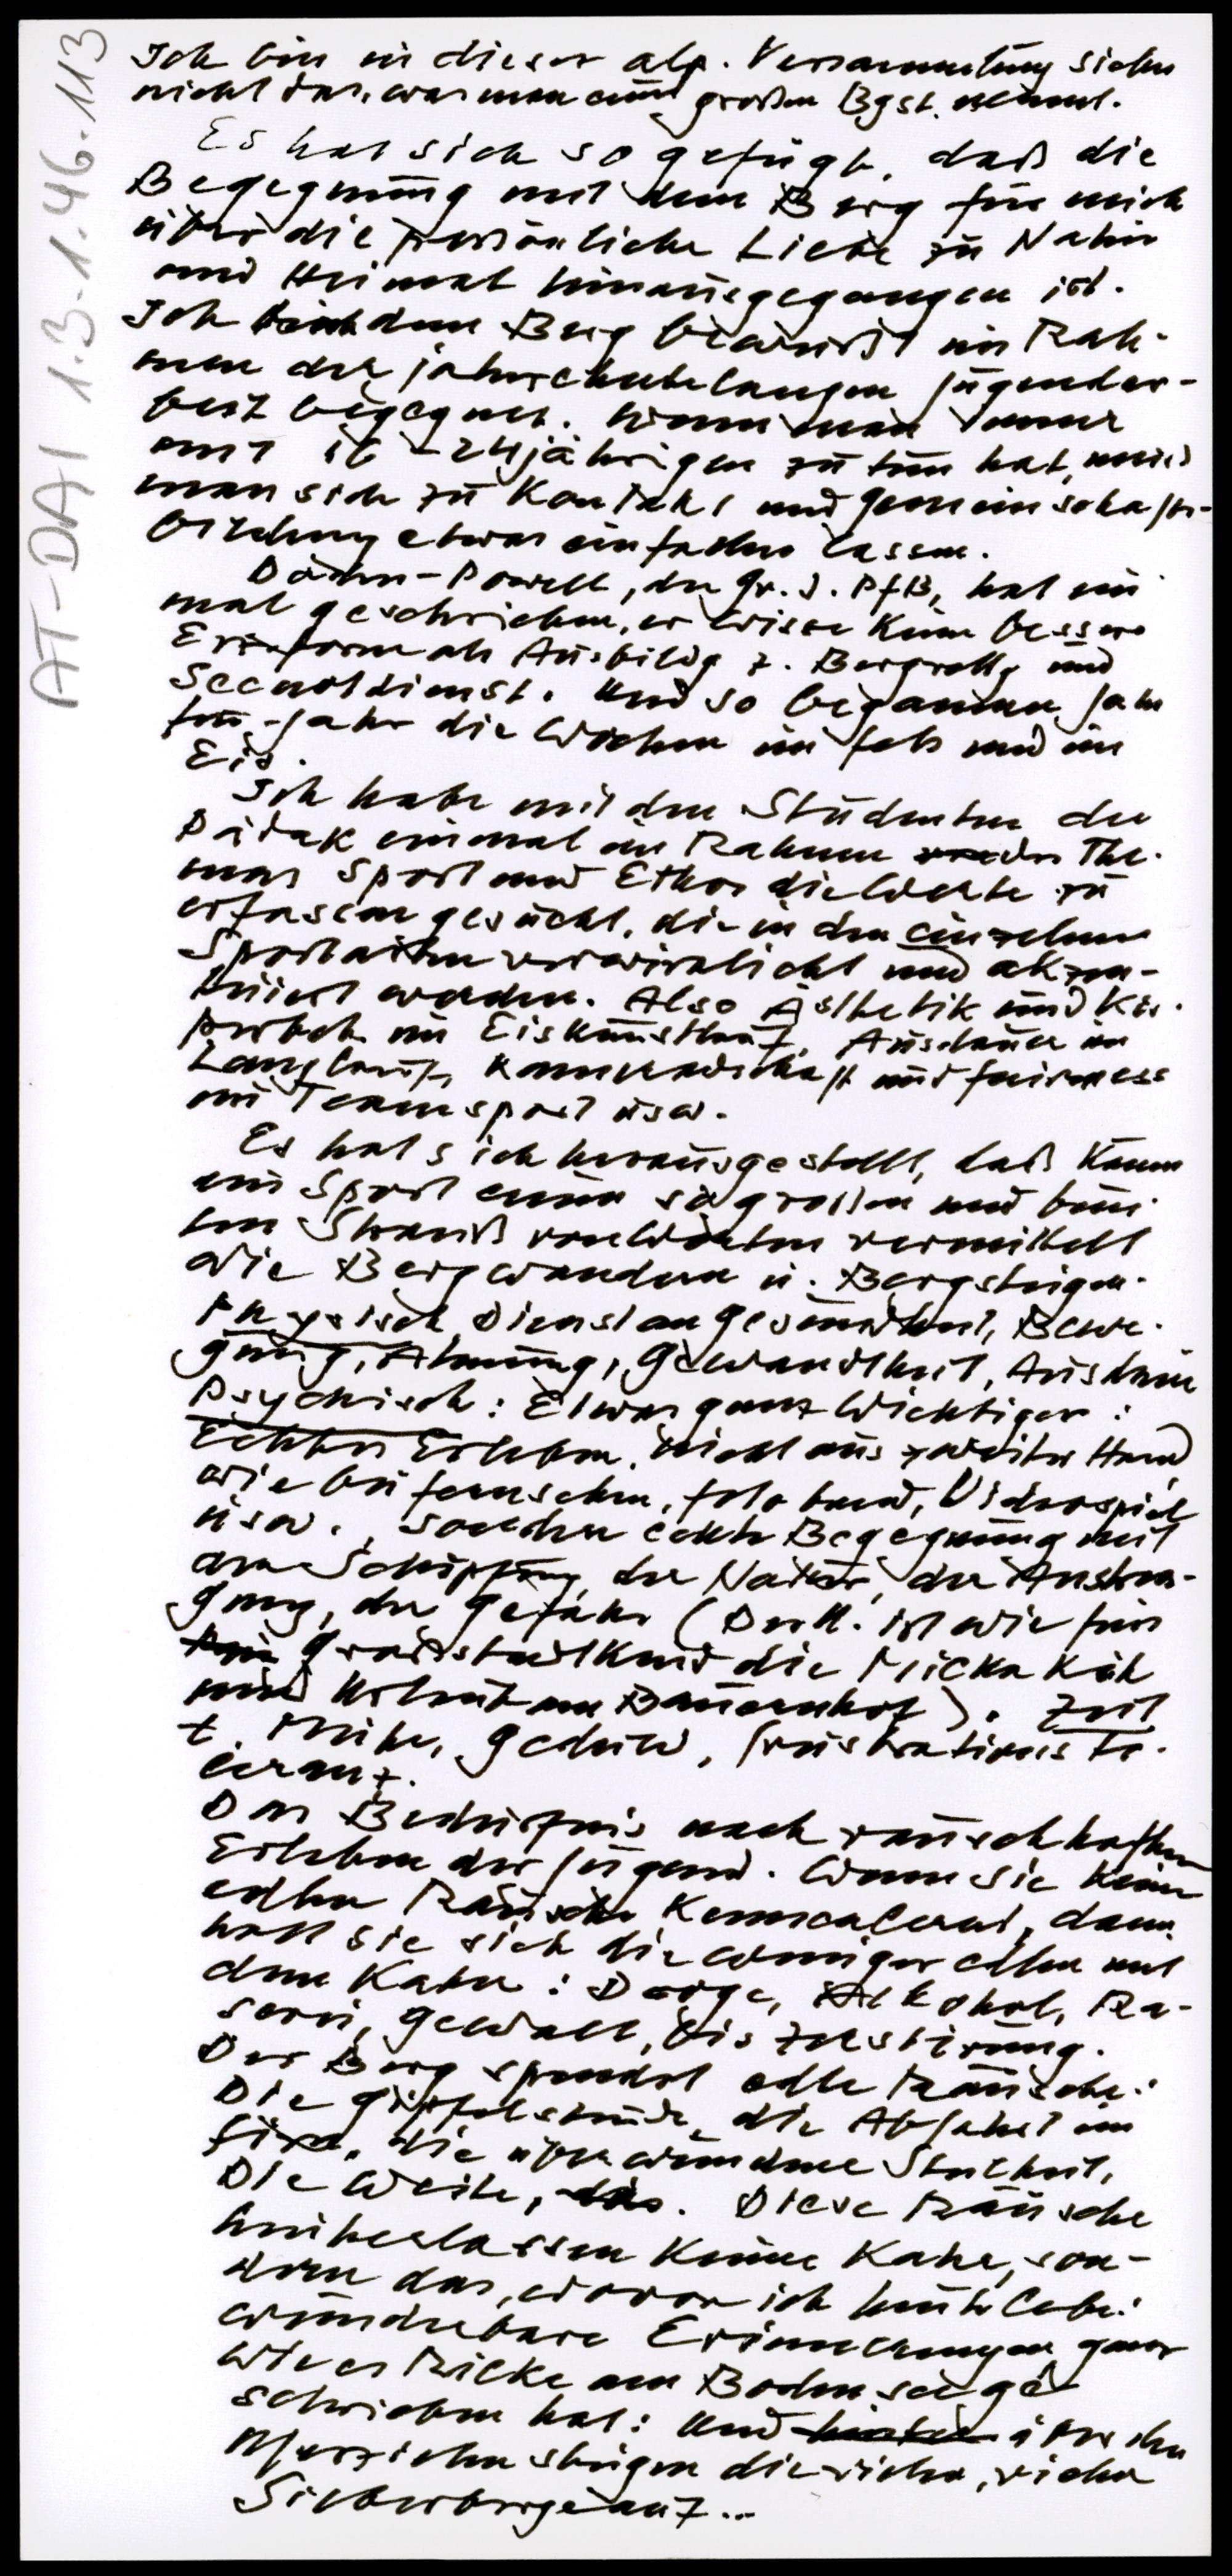 AT-DAI 1.3-1.46.113
Ich bin in dieser alp. Versammlung sicher
nicht das, was man einen großen Bgst. nennt.
Es hat sich so gefügt, daß die
Begegnung mit dem Berg für mich
über die persönliche Liebe zu Natur
und Heimat hinausgegangen ist.
Ich bin dem Berg bewußt im Rah-
men der jahrzehntelangen Jugendar-
beit begegnet. Wenn man immer
mit 16 - 24jährigen zu tun hat, muß
man sich zu Kontakt und Gemeinschafts-
bildung etwas einfallen lassen.
Baden-Powell, der Gr. d. PfB, hat ein
mal geschrieben, er wisse keine bessere
Erz.form als Ausbildg z. Bergrettg und
Seenotdienst. Und so begannen Jahr
für Jahr die Wochen im Fels und im
Eis.
Ich habe mit den Studenten der
Pädak einmal im Rahmen des The-
mas Sport und Ethos die Werte zu
erfassen gesucht, die in den einzelnen
Sportarten verwirklicht und akzen-
tuiert werden. Also Ästhetik und Kör-
perbeh. im Eiskunstlauf, Ausdauer im
Langlauf, Kameradschaft und Fairness
im Teamsport usw.
Es hat sich herausgestellt, daß kaum
ein Sport einen so großen und bun-
ten Strauß von Werten vermittelt
wie Bergwandern u. Bergsteigen.
Physisch Dienst an Gesundheit, Bewe-
gung, Atmung, Gewandtheit, Ausdauer
Psychisch: Etwas ganz Wichtiges:
Echtes Erleben. Nicht aus zweiter Hand
wie bei Fernsehen, Videospiel
usw., sondern echte Begegnung mit
der Schöpfung, der Natur, der Anstren-
gung, der Gefahr ( ist wie fürs
Großstadtkind die Milka Kuh
und Urlaub am Bauernhof). Zeit
+ Mühe, Geduld, Frustrationsto-
leranz.
Das Bedürfnis nach rauschhaftem
Erleben der Jugend. Wenn sie keine
edlen Räusche kennenlernt, dann
holt sie sich die weniger edlen mit
dem Kater: Droge, Alkohol, Ra-
serei, Gewalt, bis Zerstörung.
Der Berg spendet edle Räusche:
Die Gipfelstunde, die Abfahrt im
Firn, die überwundene Steilheit,
Die Weite. Diese Räusche
hinterlassen keine Kater, son-
dern das, wovon ich heute lebe:
wunderbare Erinnerungen ganz
wie es Rilke am Bodensee ge-
schrieben hat: Und über den
steigen die vielen, vielen
Silberberge auf...